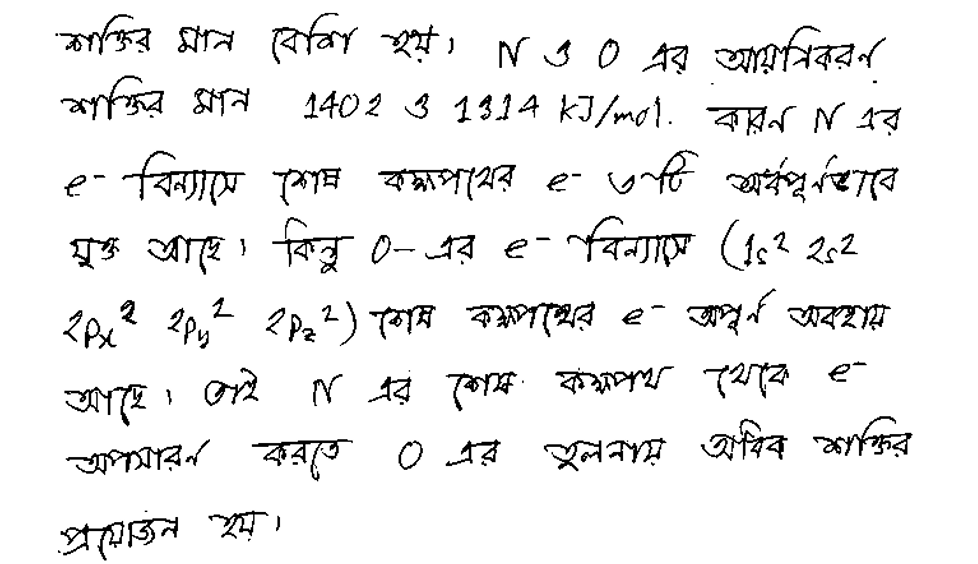 শক্তির মান বেশি হয়। N ও O এর আয়নিকরণ
শক্তির মান 1402 ও 1314 kJ/mol. কারণ N এর
e⁻ বিন্যাসে শেষ কক্ষপথের e⁻ ৩টি অর্ধপূর্নভাবে
যুক্ত আছে। কিন্তু O-এর e⁻ বিন্যাসে (1s² 2s²
2pₓ² 2pᵧ² 2p_z²) শেষ কক্ষপথের e⁻ অপূর্ন অবস্থায়
আছে। তাই N এর শেষ কক্ষপথ থেকে e⁻
অপসারন করতে O এর তুলনায় অধিক শক্তির
প্রয়োজন হয়।